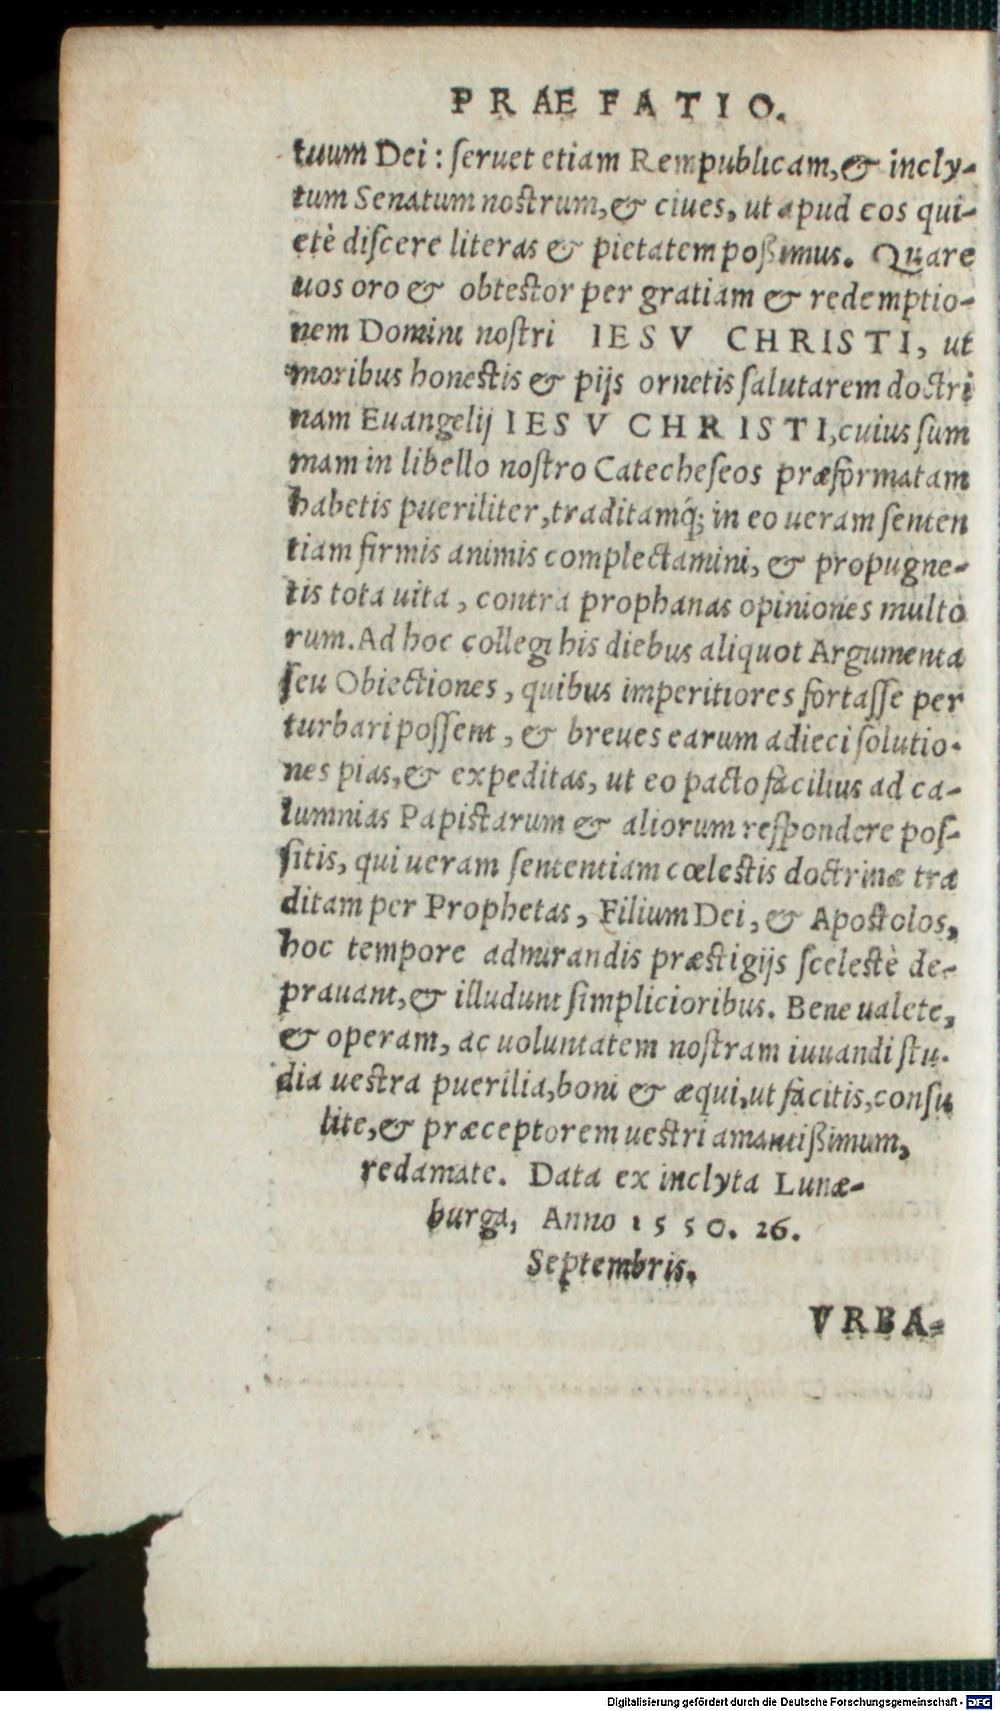 PRÆFATIO.
tuum Dei: ſeruet etiam Rempublicam,& incly-
tum Senatum noſtrum,& ciues, ut apud eos qui-
etè diſcere literas & pietatem poßimus. Quare
uos oro & obteſtor per gratiam & redemptio-
nem Domini noſtri IESV CHRISTI, ut
moribus honeſtis & pijs ornetis ſalutarem doctri
nam Euangelij IESV CHRISTI,cuius ſum
mam in libello noſtro Catecheſeos præformatam
habetis pueriliter,traditamq́; in eo ueram ſenten
tiam firmis animis complectamini, & propugne-
tis tota uita, contra prophanas opiniones multo
rum. Ad hoc collegi his diebus aliquot Argumenta
ſeu Obiectiones, quibus imperitiores fortaſſe per
turbari poſſent, & breues earum adieci ſolutio-
nes pias,& expeditas, ut eo pacto facilius ad ca-
lumnias Papiſtarum & aliorum reſpondere poſ-
ſitis, qui ueram ſententiam cœleſtis doctrinæ tra
ditam per Prophetas, Filium Dei, & Apoſtolos,
hoc tempore admirandis præſtigijs ſceleſtè de-
prauant,& illudunt ſimplicioribus. Bene ualete,
& operam, ac uoluntatem noſtram iuuandi ſtu-
dia ueſtra puerilia,boni & æqui,ut facitis,conſu
lite,& præceptorem ueſtri amantißimum,
redamate. Data ex inclyta Lunæ-
burga, Anno 1550. 26.
Septembris.
VRBA-
Digitalisierung gefördert durch die Deutsche Forschungsgemeinschaft - DFG